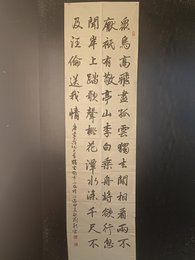 衆鳥高飛盡孤雲獨去閒相看兩不
厭祇有敬亭山李白乘舟將欲行忽
聞岸上踏歌聲桃花潭水深千尺不
及汪倫送我情